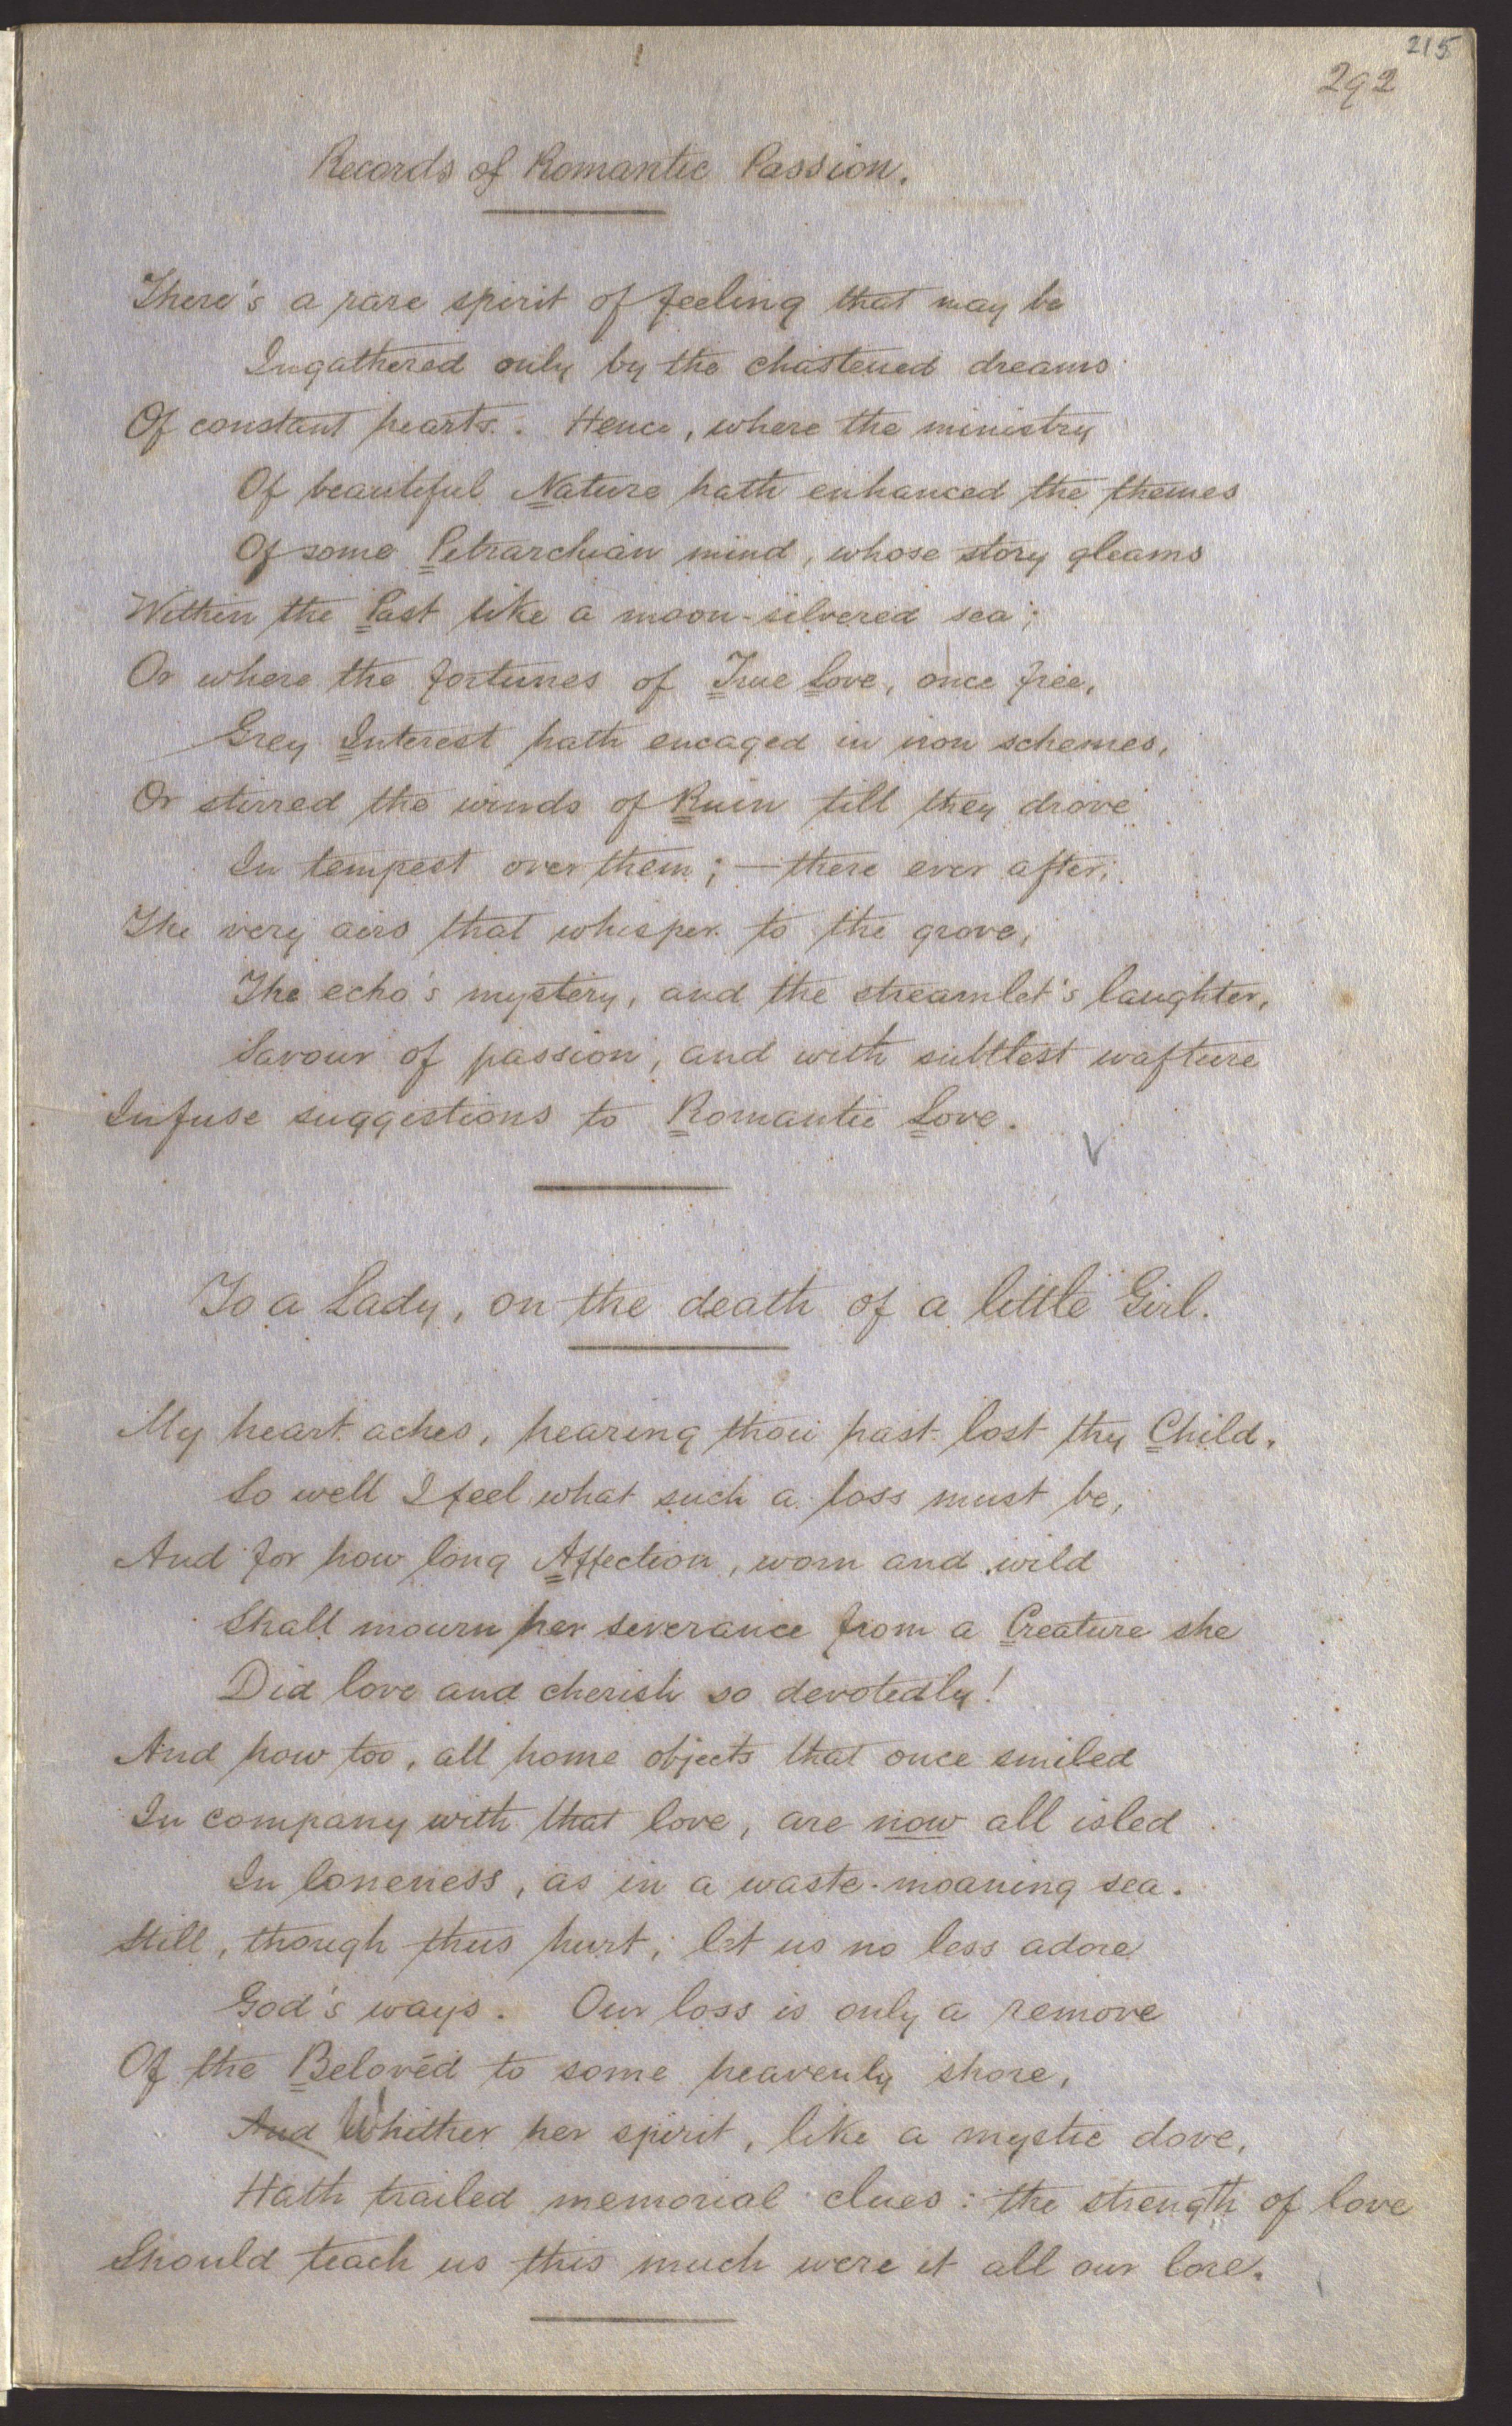 215
292
Records of Romantic Passion.
There's a rare spirit of feeling that may be
Ingathered only by the chastened dreams
Of constant hearts. Hence, where the ministry
Of beautiful Nature hath enhanced the themes
Of some Petrarchian mind, whose story gleams
Within the Past like a moon-silvered sea;
Or where the fortunes of True Love, once free,
Grey Interest hath encaged in iron schemes,
Or stirred the winds of Ruin till they drove
In tempest over them; — there ever after,
The very airs that whisper to the grove,
The echo's mystery, and the streamlet's laughter,
Savour of passion, and with subtlest wafture
Infuse suggestions to Romantic Love.
To a Lady, on the death of a little Girl.
My heart aches, hearing thou hast lost thy Child.
So well I feel what such a loss must be,
And for how long Affection, worn and wild
Shall mourn her severance from a Creature she
Did love and cherish so devotedly!
And how too, all home objects that once smiled
In company with that love, are now all isled
In loneness, as in a waste-moaning sea.
Still, though thus hurt, let us no less adore
God's ways. Our loss is only a remove
Of the Belovéd to some heavenly shore,
And Whither her spirit, like a mystic dove,
Hath trailed memorial clues: the strength of love
Should teach us this much were it all our lore.